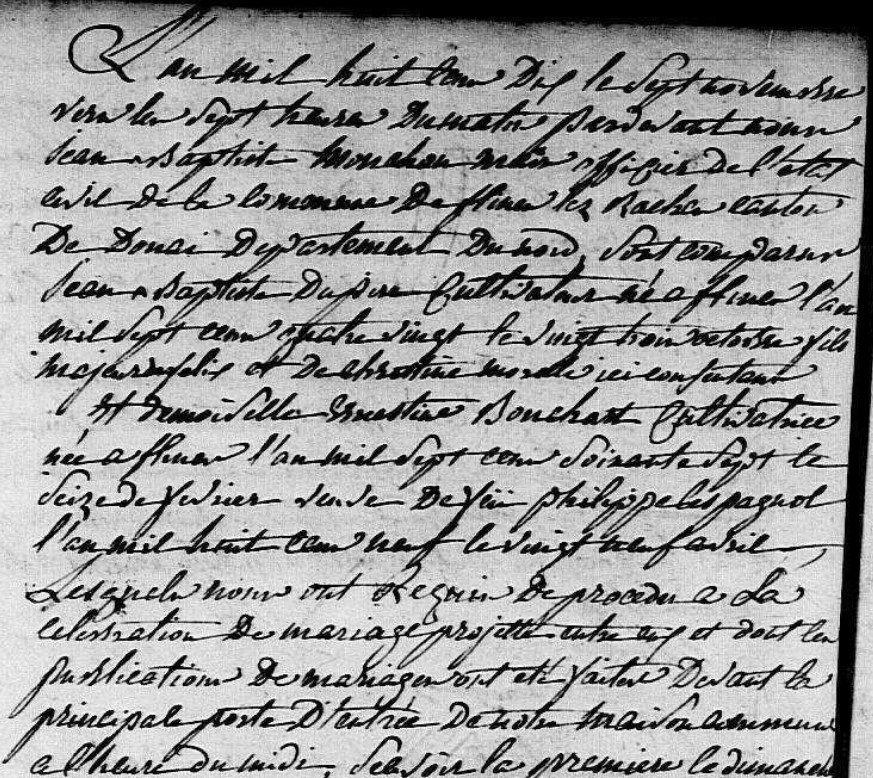 L'an mil huit cens Dix le Sept novembre
vers les Sept heures Dumatin pardevant nous
jean Baptiste Monchau maire officier de l'etat
civil de la Commune De flines lez Raches canton
De Douai Departement Du nord, Sont comparus
jean Baptiste Dupire Cultivateur né a flines l'an
mil sept cens quatre vingt le vingt trois octobre fils
majeur Et De Christine ici consentant
Et demoiselle Ernestine Bouchart Cultivatrice
née a flines l'an mil sept cens Soixante Sept le
Seize de fevrier veuve De feu philippe Lespagnol
l'an mil huit cens neuf le vingt neuf avril
Lesquels nous ont Requis De proceder a La
celebration De mariage projetté entre eux et dont les
publications De mariages ont eté faites Devant la
principale porte D'entrée De notre maison commune
a l'heure du midi, Scavoir la premiere le dimanche